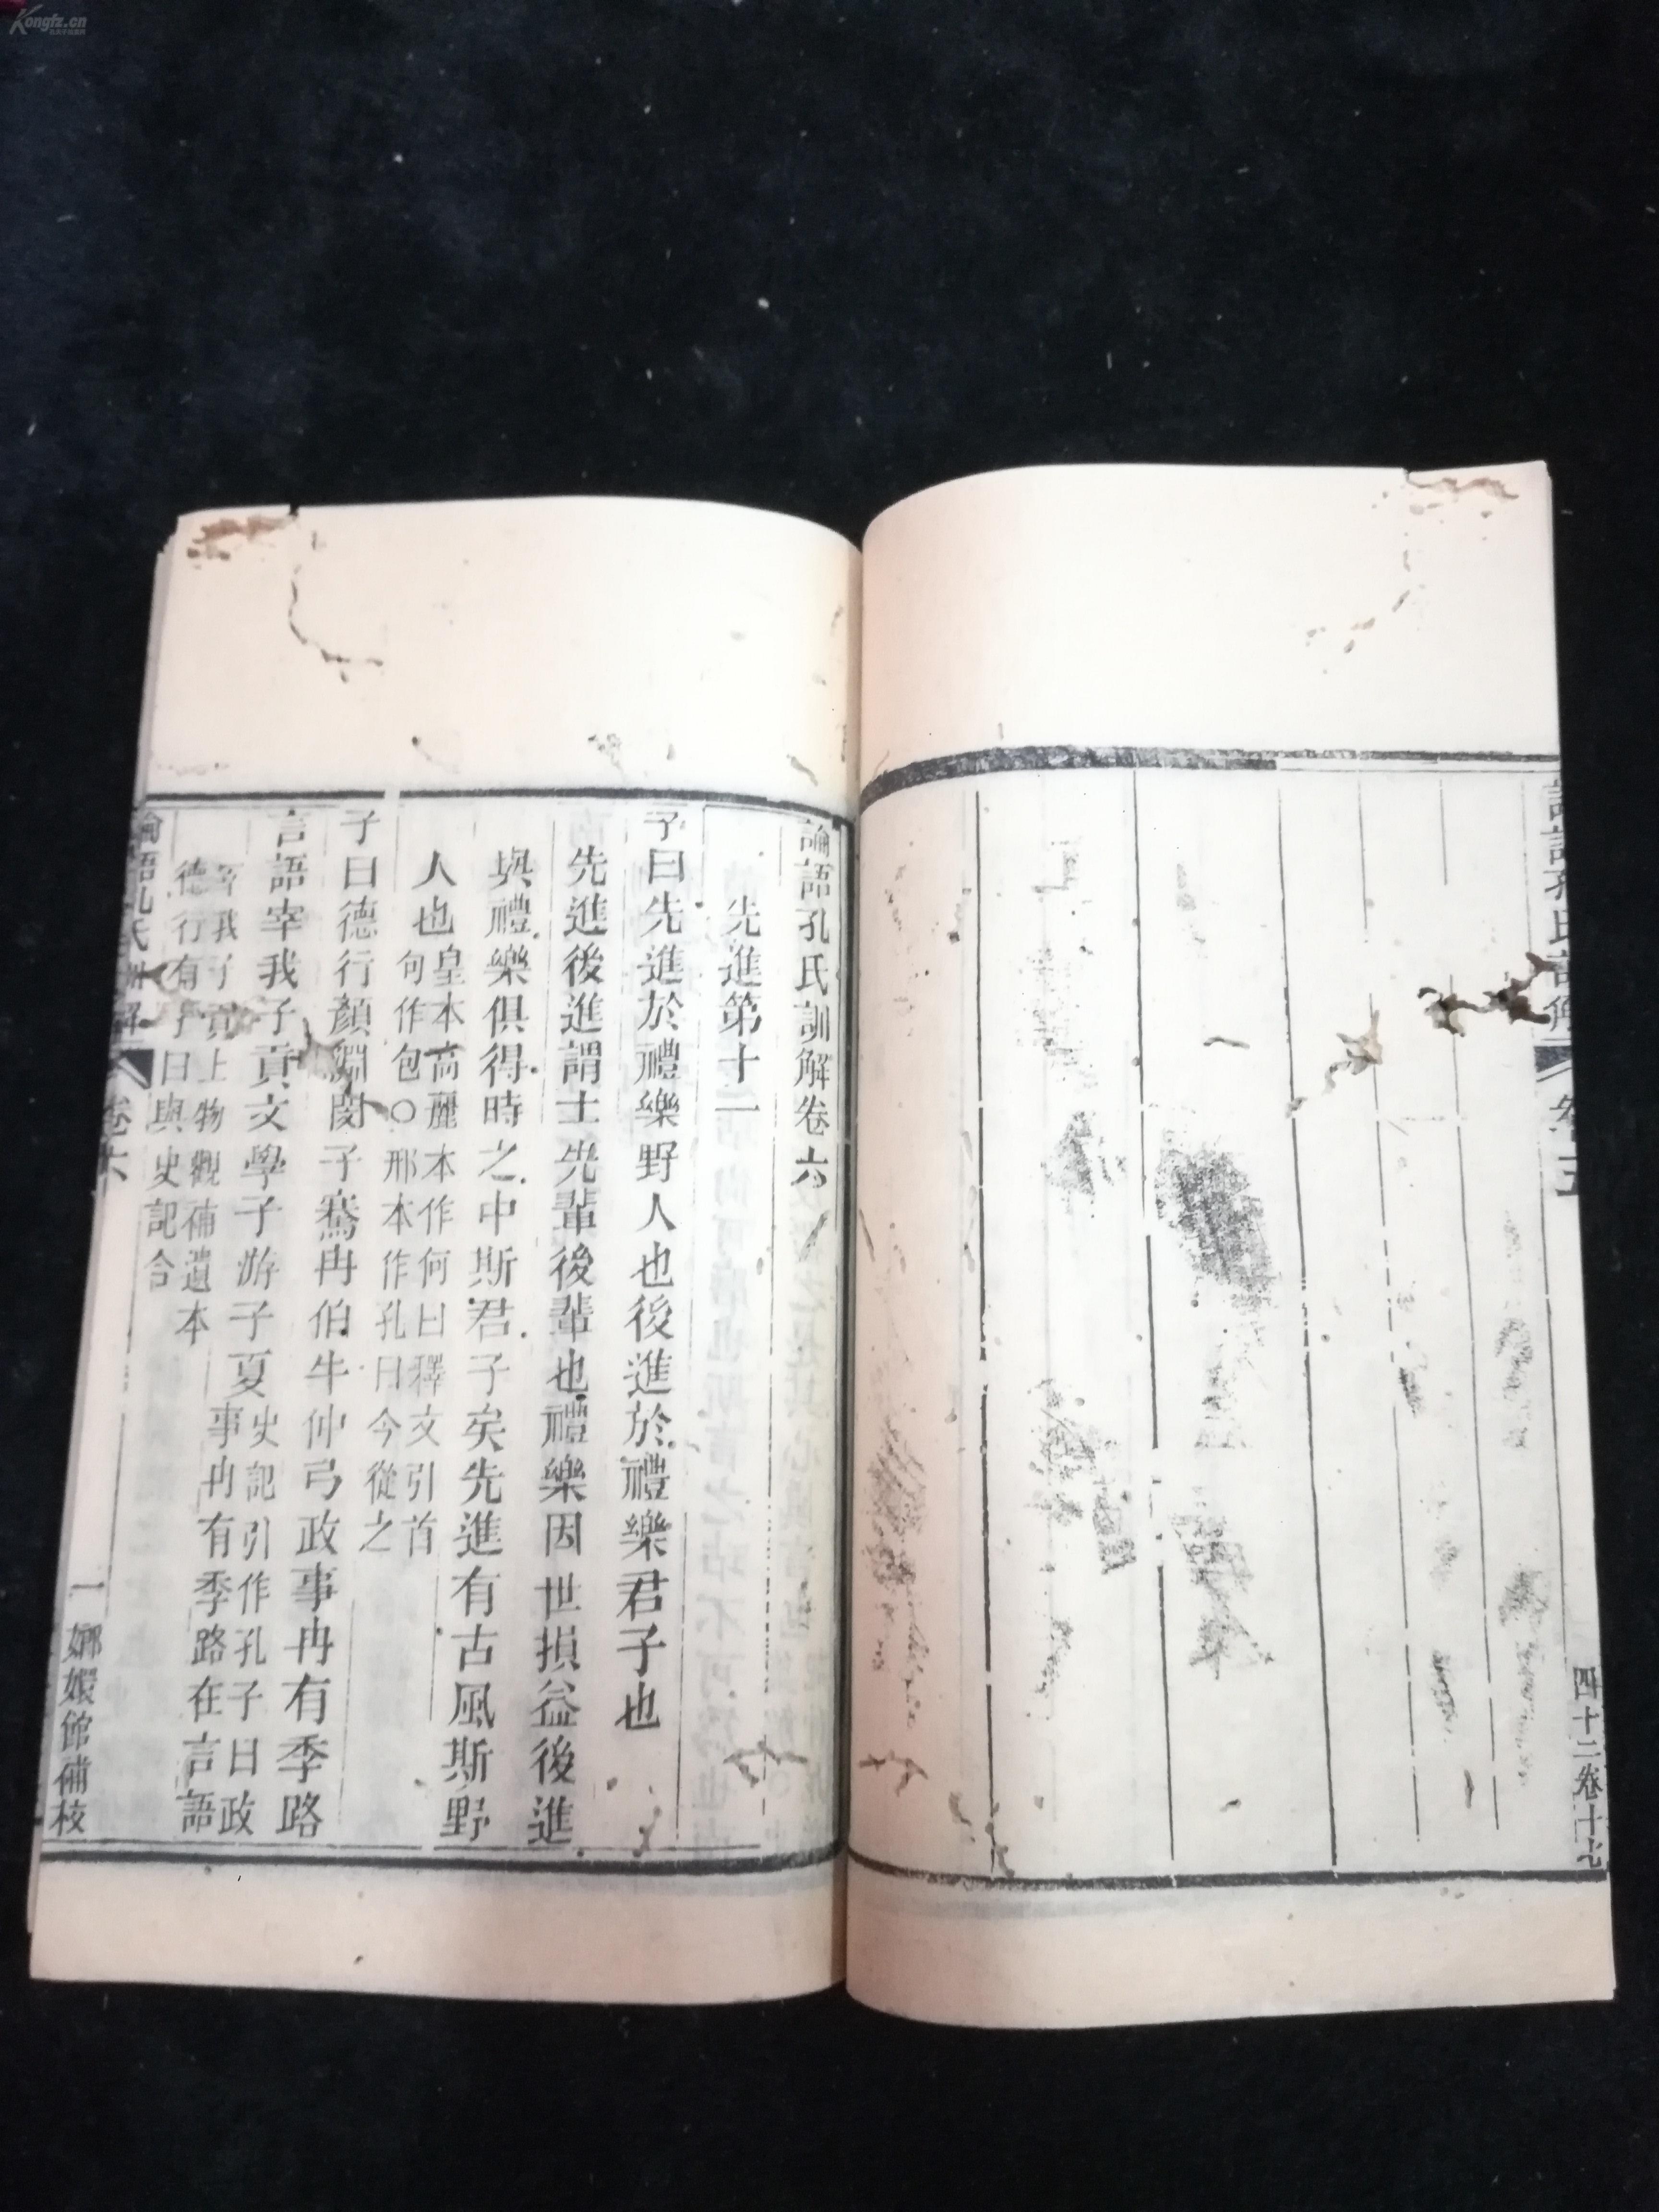 Kongfz.cn
論語孔氏訓解
卷五
四十二卷十七
論語孔氏訓解卷六
先進第十一
子曰先進於禮樂野人也後進於禮樂君子也
先進後進謂士先輩後輩也禮樂因世損益後進
與禮樂俱得時之中斯君子矣先進有古風斯野
人也
皇本高麗本作何曰釋文引首
句作包○邢本作孔曰今從之
子曰德行顏淵閔子騫冉伯牛仲弓政事冉有季路
言語宰我子貢文學子游子夏
史記引作孔子曰政
事冉有季路在言語
宰我子貢上物觀補遺本
德行有子曰與史記合
論語孔氏訓解
卷六
一
嫏嬛館補校